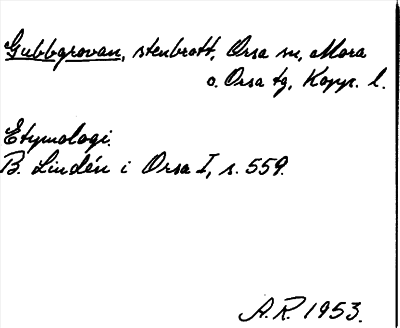 Gubbgrovan, stenbrott, Orsa sn, Mora
o. Orsa tg, Kopp. l.
Etymologi.
B. Lindén i Orsa I, s. 559.
A.R. 1953.